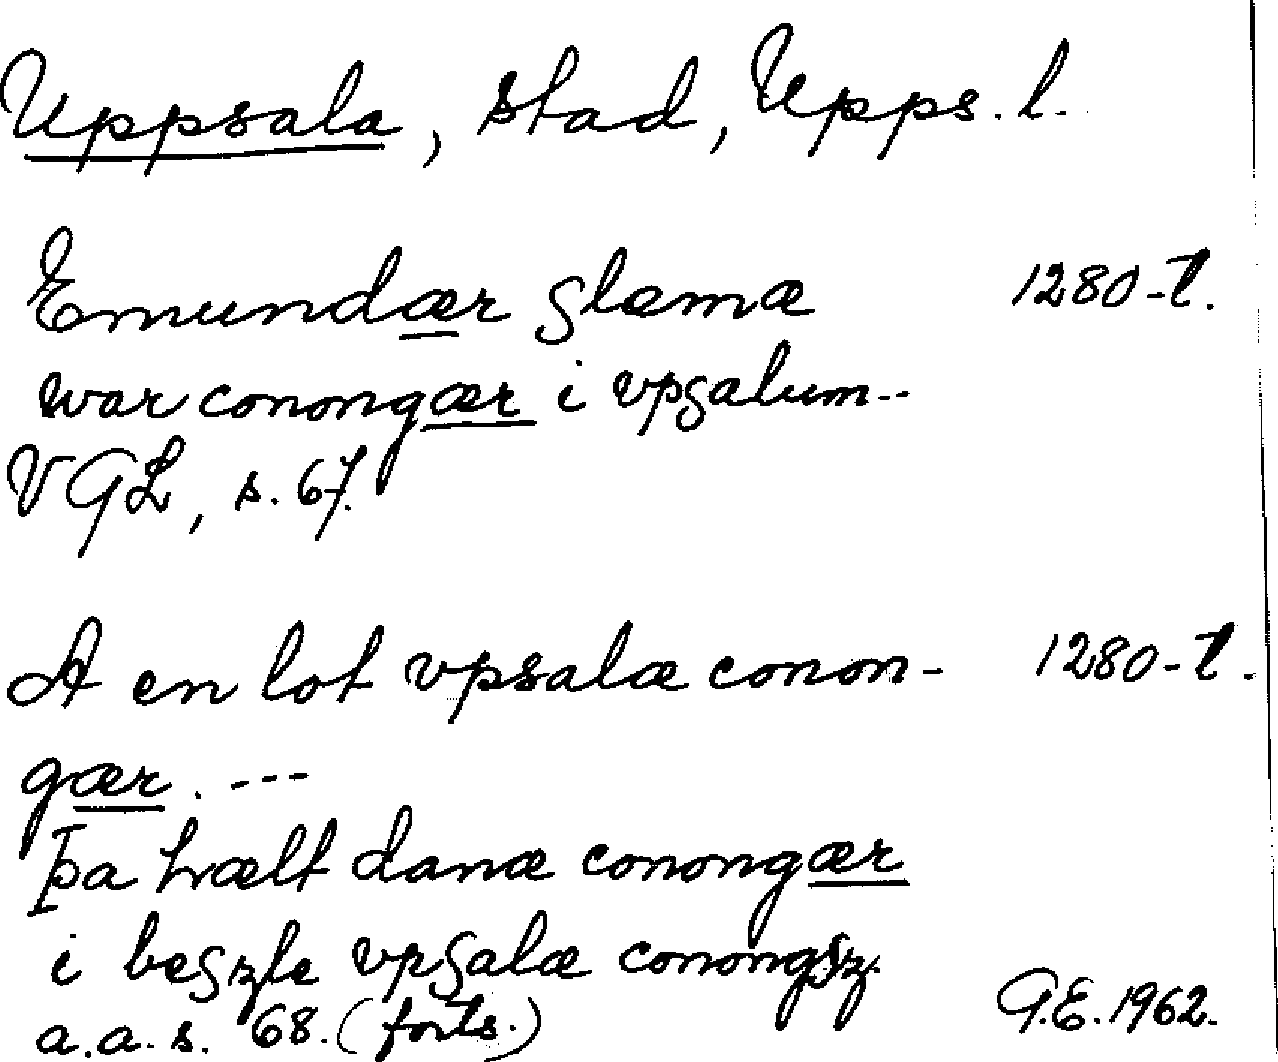 Uppsala, stad, Upps. l.
Emundær slæmæ 1280-t.
war conongær i vpsalum--
VGL, s. 67.
A en lot vpsalæ conon- 1280-t.
gær. ---
Þa hælt danæ conongær
i bezle vpsalæ conongsz.
a.a. s. 68. (forts.) G.E. 1962.